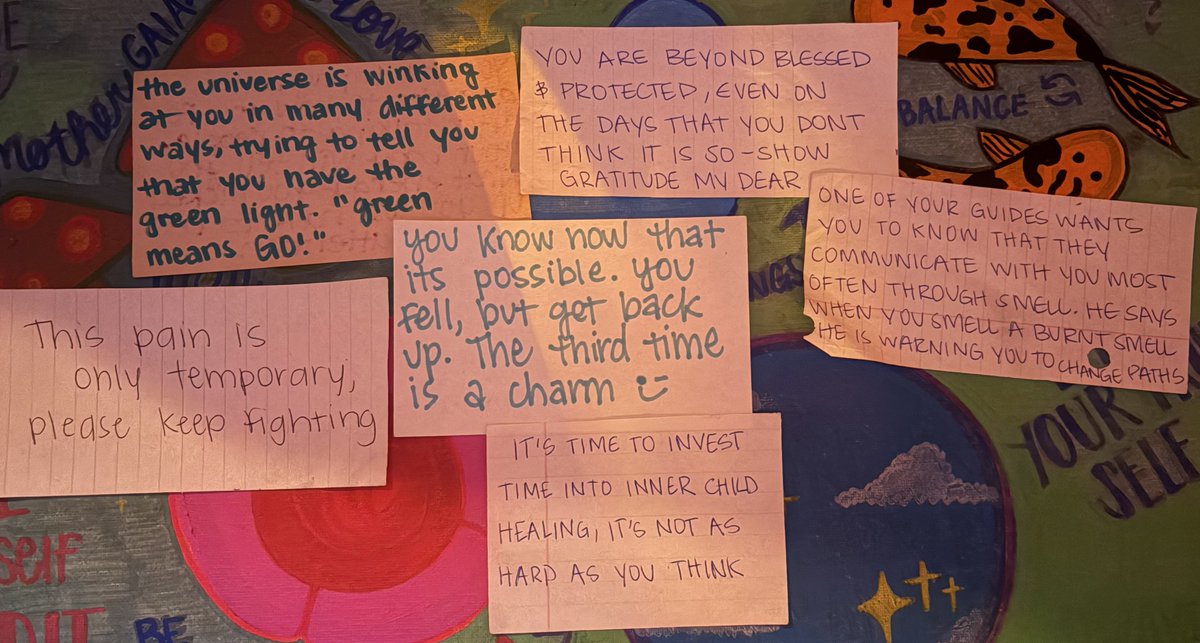 Mother GAIA
the universe is winking
at you in many different
ways, trying to tell you
that you have the
green light. "green
means GO!"
YOU ARE BEYOND BLESSED
& PROTECTED, EVEN ON
THE DAYS THAT YOU DONT
THINK IT IS SO-SHOW
GRATITUDE MY DEAR
BALANCE
ONE OF YOUR GUIDES WANTS
YOU TO KNOW THAT THEY
COMMUNICATE WITH YOU MOST
OFTEN THROUGH SMELL. HE SAYS
WHEN YOU SMELL A BURNT SMELL
HE IS WARNING YOU TO CHANGE PATHS
you know now that
its possible. you
fell, but get back
up. The third time
is a charm
This pain is
only temporary,
please keep fighting
IT'S TIME TO INVEST
TIME INTO INNER CHILD
HEALING, IT'S NOT AS
HARD AS YOU THINK
YOUR
SELF
BE